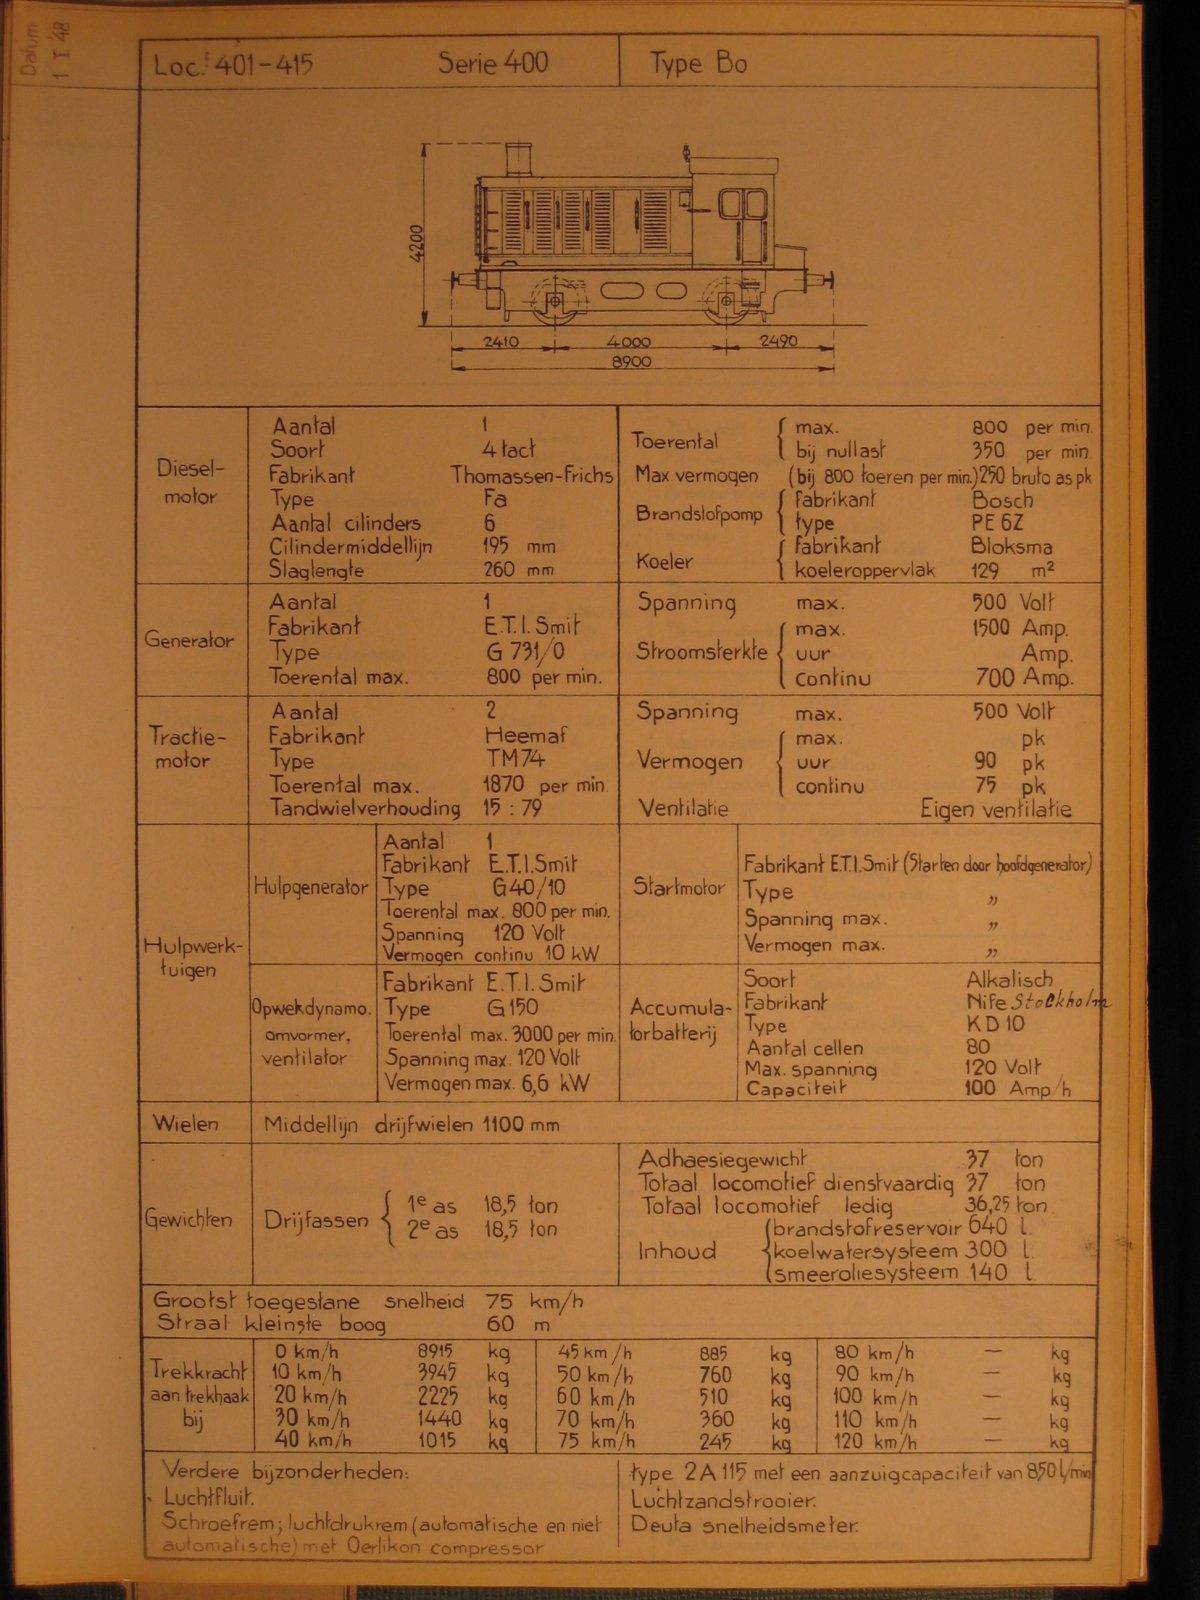 Datum
1 I '48
Loc.ᶠ 401-415 Serie 400 Type Bo
4200
2410 4000 2490
8900
Diesel-
motor
Aantal 1
Soort 4 tact
Fabrikant Thomassen-Frichs
Type Fa
Aantal cilinders 6
Cilindermiddellijn 195 mm
Slaglengte 260 mm
Toerental { max. 800 per min.
bij nullast 350 per min
Max vermogen (bij 800 toeren per min.) 250 bruto as pk
Brandstofpomp { fabrikant Bosch
type PE 6Z
Koeler { fabrikant Bloksma
koeleroppervlak 129 m²
Generator
Aantal 1
Fabrikant E.T.I. Smit
Type G 731/0
Toerental max. 800 per min.
Spanning max. 500 Volt
Stroomsterkte { max. 1500 Amp.
uur Amp.
continu 700 Amp.
Tractie-
motor
Aantal 2
Fabrikant Heemaf
Type TM74
Toerental max. 1870 per min.
Tandwielverhouding 15 : 79
Spanning max. 500 Volt
Vermogen { max. pk
uur 90 pk
continu 75 pk
Ventilatie Eigen ventilatie
Hulpwerk-
tuigen
Hulpgenerator
Aantal 1
Fabrikant E.T.I.Smit
Type G40/10
Toerental max. 800 per min.
Spanning 120 Volt
Vermogen continu 10 kW
Startmotor
Fabrikant E.T.I.Smit (Starten door hoofdgenerator)
Type „
Spanning max. „
Vermogen max. „
Opwekdynamo.
omvormer,
ventilator
Fabrikant E.T.I. Smit
Type G150
Toerental max. 3000 per min.
Spanning max. 120 Volt
Vermogen max. 6,6 kW
Accumula-
torbatterij
Soort Alkalisch
Fabrikant Nife Stockholm
Type KD10
Aantal cellen 80
Max. spanning 120 Volt
Capaciteit 100 Amp/h
Wielen Middellijn drijfwielen 1100 mm
Gewichten
Drijfassen { 1e as 18,5 ton
2e as 18,5 ton
Adhaesiegewicht 37 ton
Totaal locomotief dienstvaardig 37 ton
Totaal locomotief ledig 36,25 ton
Inhoud { brandstofreservoir 640 l.
koelwatersysteem 300 l.
smeeroliesysteem 140 l.
Grootst toegestane snelheid 75 km/h
Straal kleinste boog 60 m
Trekkracht
aan trekhaak
bij
0 km/h 8915 kg 45 km/h 885 kg 80 km/h — kg
10 km/h 3945 kg 50 km/h 760 kg 90 km/h — kg
20 km/h 2225 kg 60 km/h 510 kg 100 km/h — kg
30 km/h 1440 kg 70 km/h 360 kg 110 km/h — kg
40 km/h 1015 kg 75 km/h 245 kg 120 km/h — kg
Verdere bijzonderheden:
Luchtfluit.
Schroefrem; luchtdrukrem (automatische en niet
automatische) met Oerlikon compressor
type 2A115 met een aanzuigcapaciteit van 850 l/min
Luchtzandstrooier.
Deuta snelheidsmeter.